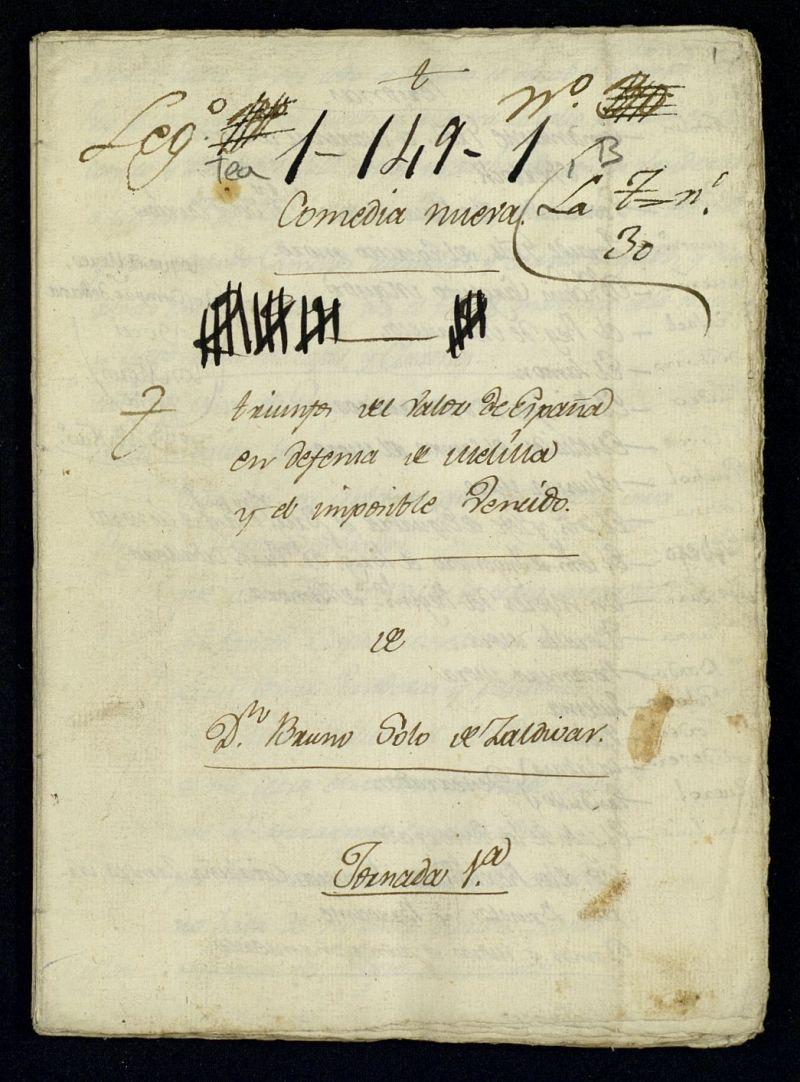 1
t
Leg.º Nº.
Tea 1-149-1, B
Comedia nueva. La 7=n.
30
7 triunfos del Valor de España
en defensa de Melilla
y el imposible Vencido.
de
D.n Bruno Solo de Zaldivar.
Jornada 1.ª